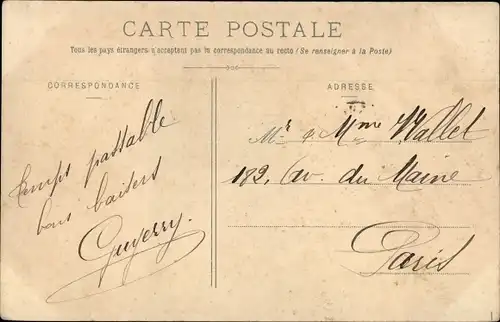 CARTE POSTALE
Tous les pays étrangers n'acceptent pas la correspondance au recto (Se renseigner à la Poste)
CORRESPONDANCE
Temps passable
bons baisers
Guyerry
ADRESSE
Mr & Mme Wallet
182, av. du Maine
Paris